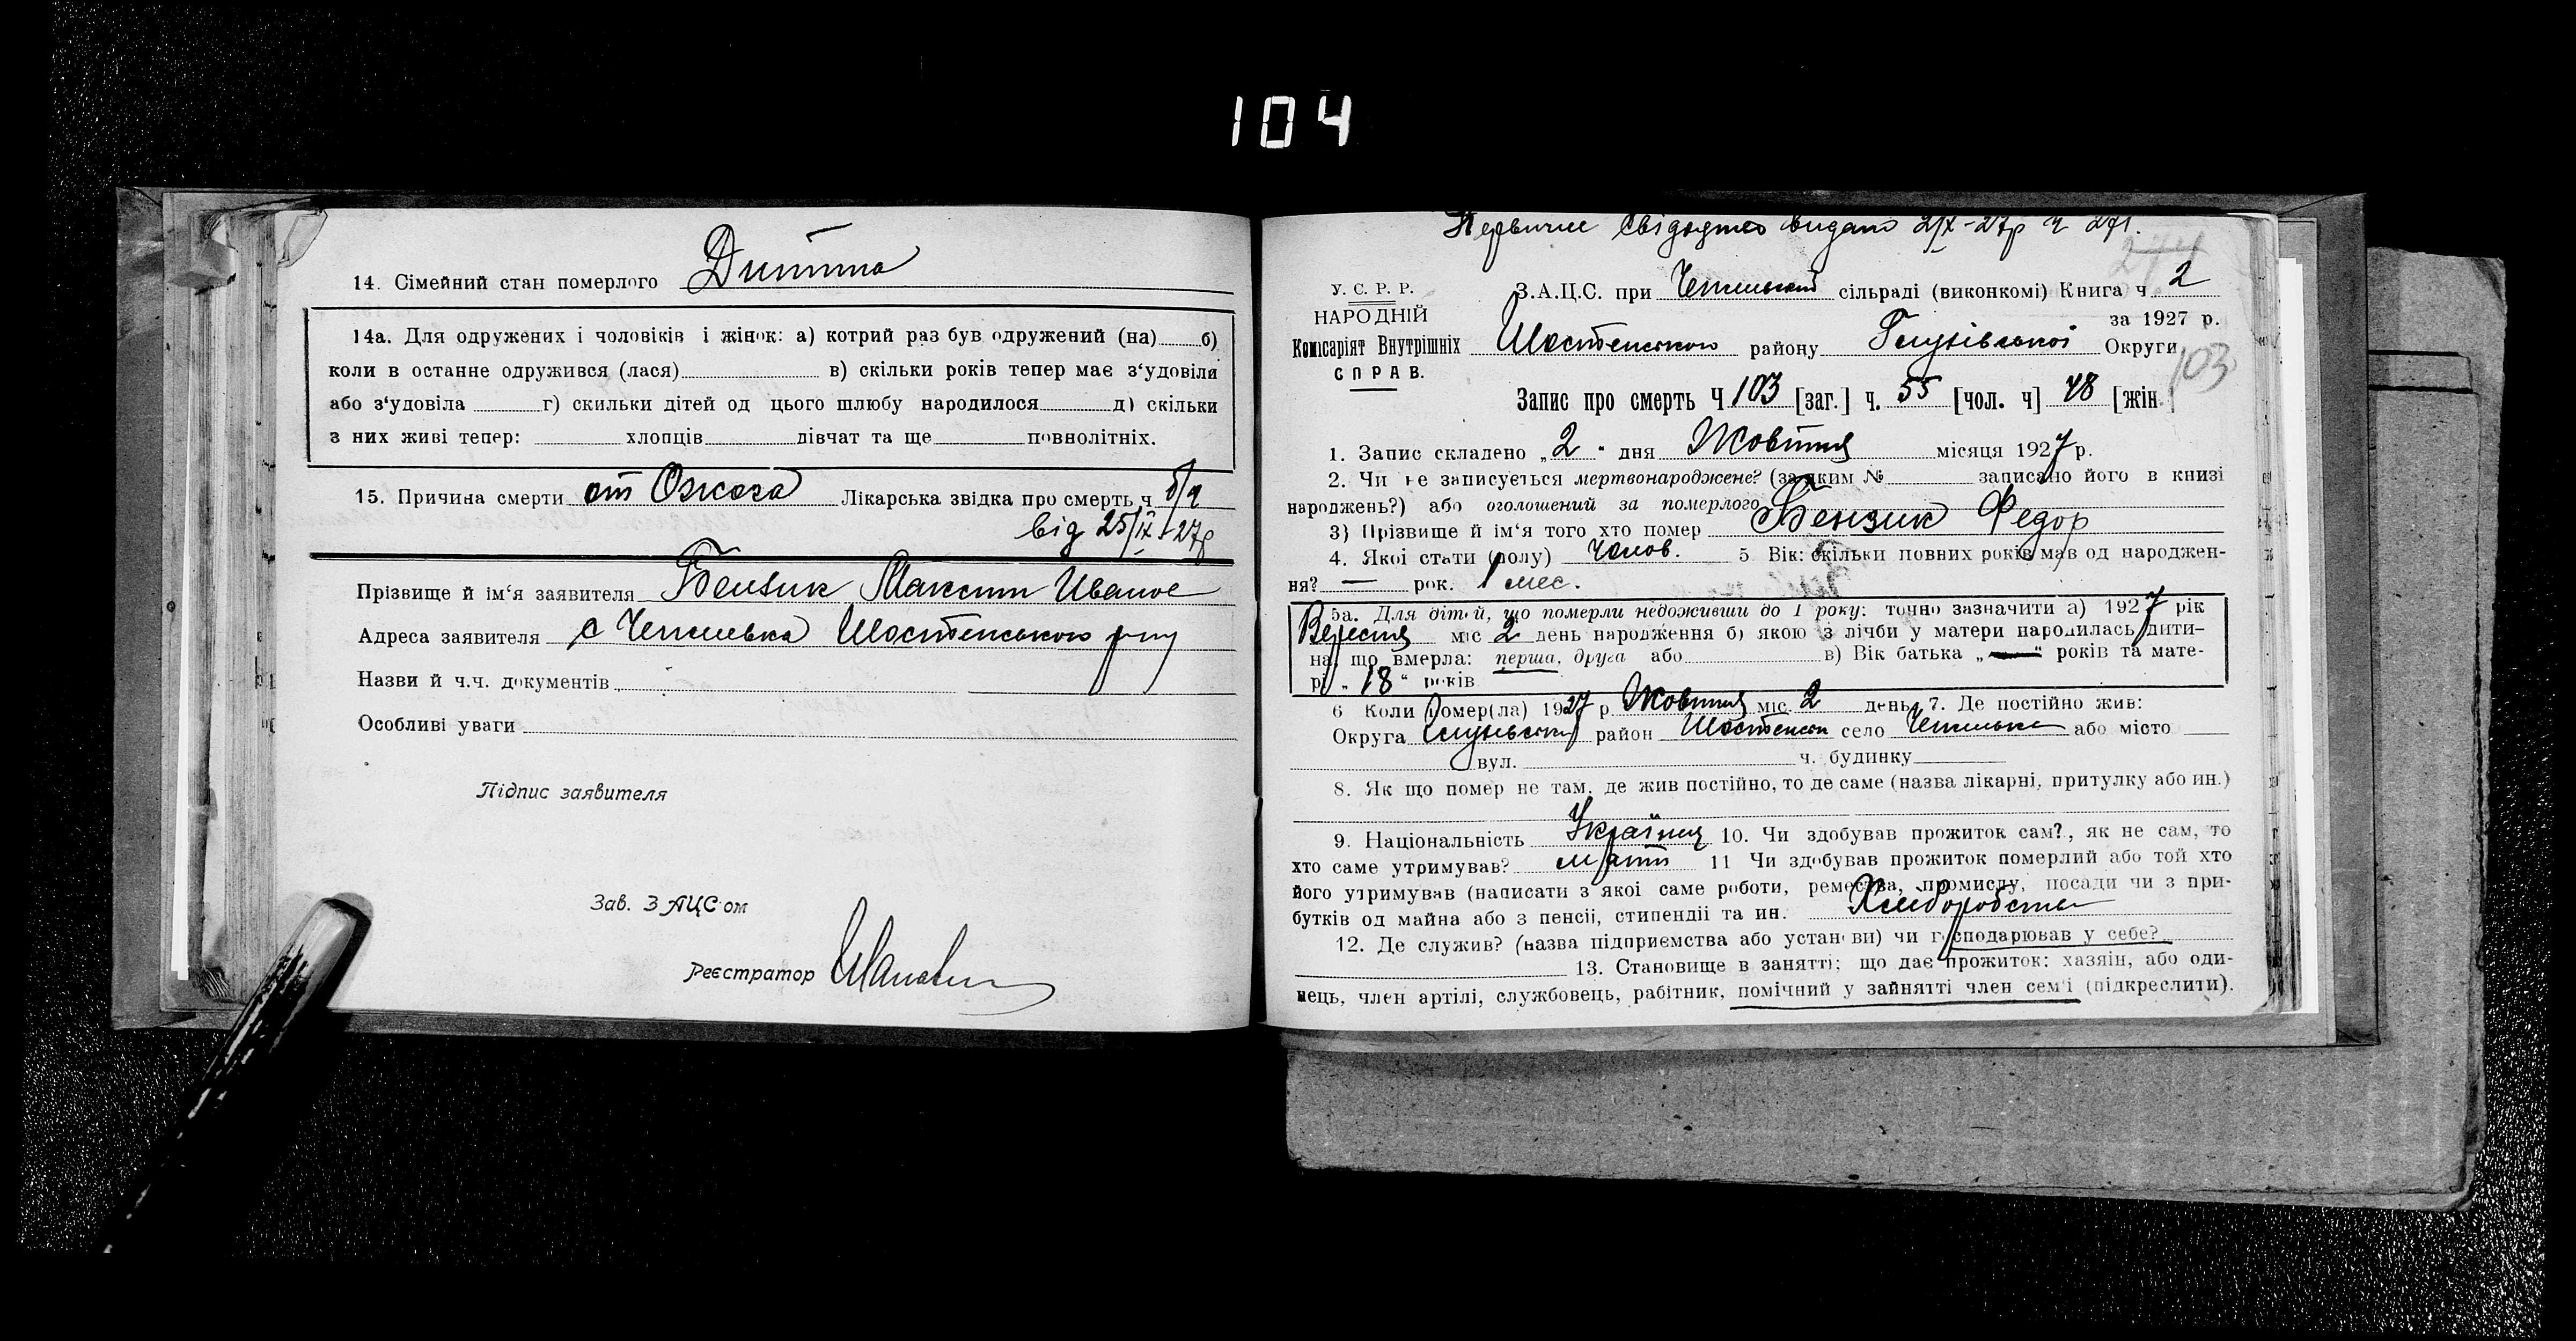 104
14. Сімейний стан померлого Дитина
14а. Для одружених і чоловіків і жінок: а) котрий раз був одружений (на) б)
коли в останне одружився (лася) в) скільки років тепер має з‘удовіли
або з‘удовіла г) скильки дітей од цього шлюбу народилося д) скільки
з них живі тепер: хлопців дівчат та ще повнолітніх.
15. Причина смерти от Ожога Лікарська звідка про смерть ч б/ч
від 25/ІХ-27р
Прізвище й ім‘я заявителя Бензик Максим Иванов
Адреса заявителя с Чепиевка Шостенського р-ну
Назви й ч.ч. документів
Особливі уваги
Підпис заявителя
Зав. ЗАЦС‘ом
Реєстратор
Первичне свідоцтво видано 2/Х-27р ч 271.
271
У. С. Р. Р.
НАРОДНІЙ
Комісаріят Внутрішніх
СПРАВ.
З.А.Ц.С. при сільраді (виконкомі) Книга ч 2
за 1927 р.
Шостенського району Глухівської Округи
103
Запис про смерть Ч 103 [заг.] ч. 55 [чол. ч] 48 [жін.]
1. Запис складено „2“ дня Жовтня місяця 1927 р.
2. Чи не записується мертвонароджене? (за яким № записано його в книзі
народжень?) або оголошений за померлого
3) Прізвище й ім‘я того хто помер Бензик Федор
4. Якої стати (полу) Чолов. 5 Вік: скільки повних років мав од народжен-
ня? — рок. 1 мес.
5а. Для дітей, що померли недоживши до 1 року: точно зазначити а) 1927 рік
Вересня міс 2 день народження б) якою з лічби у матери народилась дити-
на, що вмерла: перша, друга або в) Вік батька „—“ років та мате-
рі „18“ років
6 Коли помер(ла) 1927 р Жовтня міс. 2 день 7. Де постійно жив:
Округа Глухівськ район Шостенськ село або місто
вул. ч. будинку
8. Як що помер не там, де жив постійно, то де саме (назва лікарні, притулку або ин.)
9. Національність Українец 10. Чи здобував прожиток сам?, як не сам, то
хто саме утримував? мати 11 Чи здобував прожиток померлий або той хто
його утримував (написати з якої саме роботи, ремества, промислу, посади чи з при-
бутків од майна або з пенсії, стипендії та ин. Хлеборобства
12. Де служив? (назва підприємства або установи) чи господарював у себе?
13. Становище в занятті; що дає прожиток: хазяїн, або оди-
нець, член артілі, службовець, рабітник, помічний у зайнятті член сем‘ї (підкреслити).